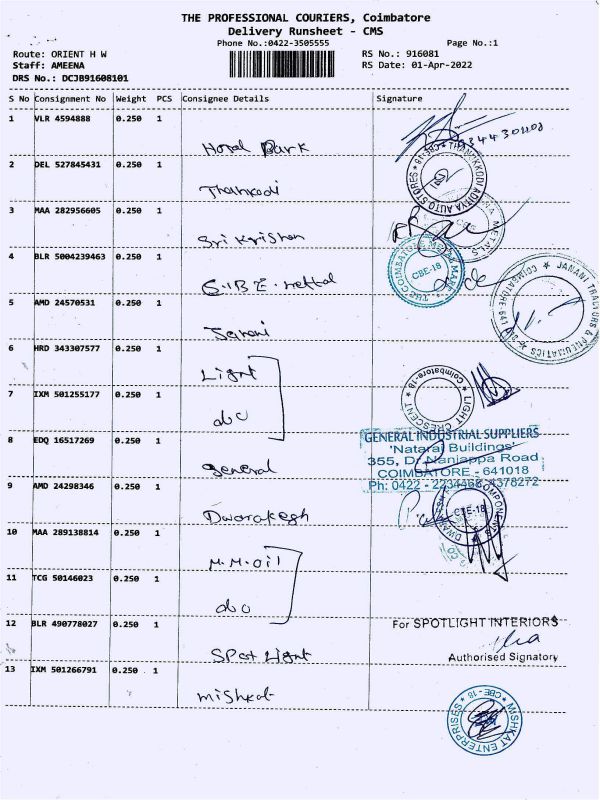 THE PROFESSIONAL COURIERS, Coimbatore
Delivery Runsheet - CMS
Phone No.:0422-3505555
Page No.:1
Route: ORIENT H W
RS No.: 916081
Staff: AMEENA
RS Date: 01-Apr-2022
DRS No.: DCJB91608101
S No Consignment No Weight PCS Consignee Details Signature
1 VLR 4594888 0.250 1 Hotel Park
2 DEL 527845431 0.250 1
THAIVIKKODI ADITYA AUTO STORES * CBE-18 *
3 MAA 282956605 0.250 1 Sri Krishna
METALS
4 BLR 5004239463 0.250 1
THE COIMBATORE METAL MART
CBE-18
5 AMD 24570531 0.250 1 Janani
JANANI TRACTORS & PNEUMATICS * COIMBATORE-641 018 *
6 HRD 343307577 0.250 1 Light
LIGHT CRESCENT * Coimbatore-18 *
7 IXM 501255177 0.250 1 do
8 EDQ 16517269 0.250 1 General
GENERAL INDUSTRIAL SUPPLIERS
'Nataraj Buildings'
355, Dr. Nanjappa Road
COIMBATORE - 641018
Ph: 0422 - 2234468, 4378272
9 AMD 24298346 0.250 1 Dwarakesh
COMPONENTS
CBE-18
10 MAA 289138814 0.250 1 M.M.oil
11 TCG 50146023 0.250 1 do
12 BLR 490778027 0.250 1 Spot Light
For SPOTLIGHT INTERIORS
Authorised Signatory
13 IXM 501266791 0.250 1 Mishkat
MISHKAT ENTERPRISES * CBE-18 *